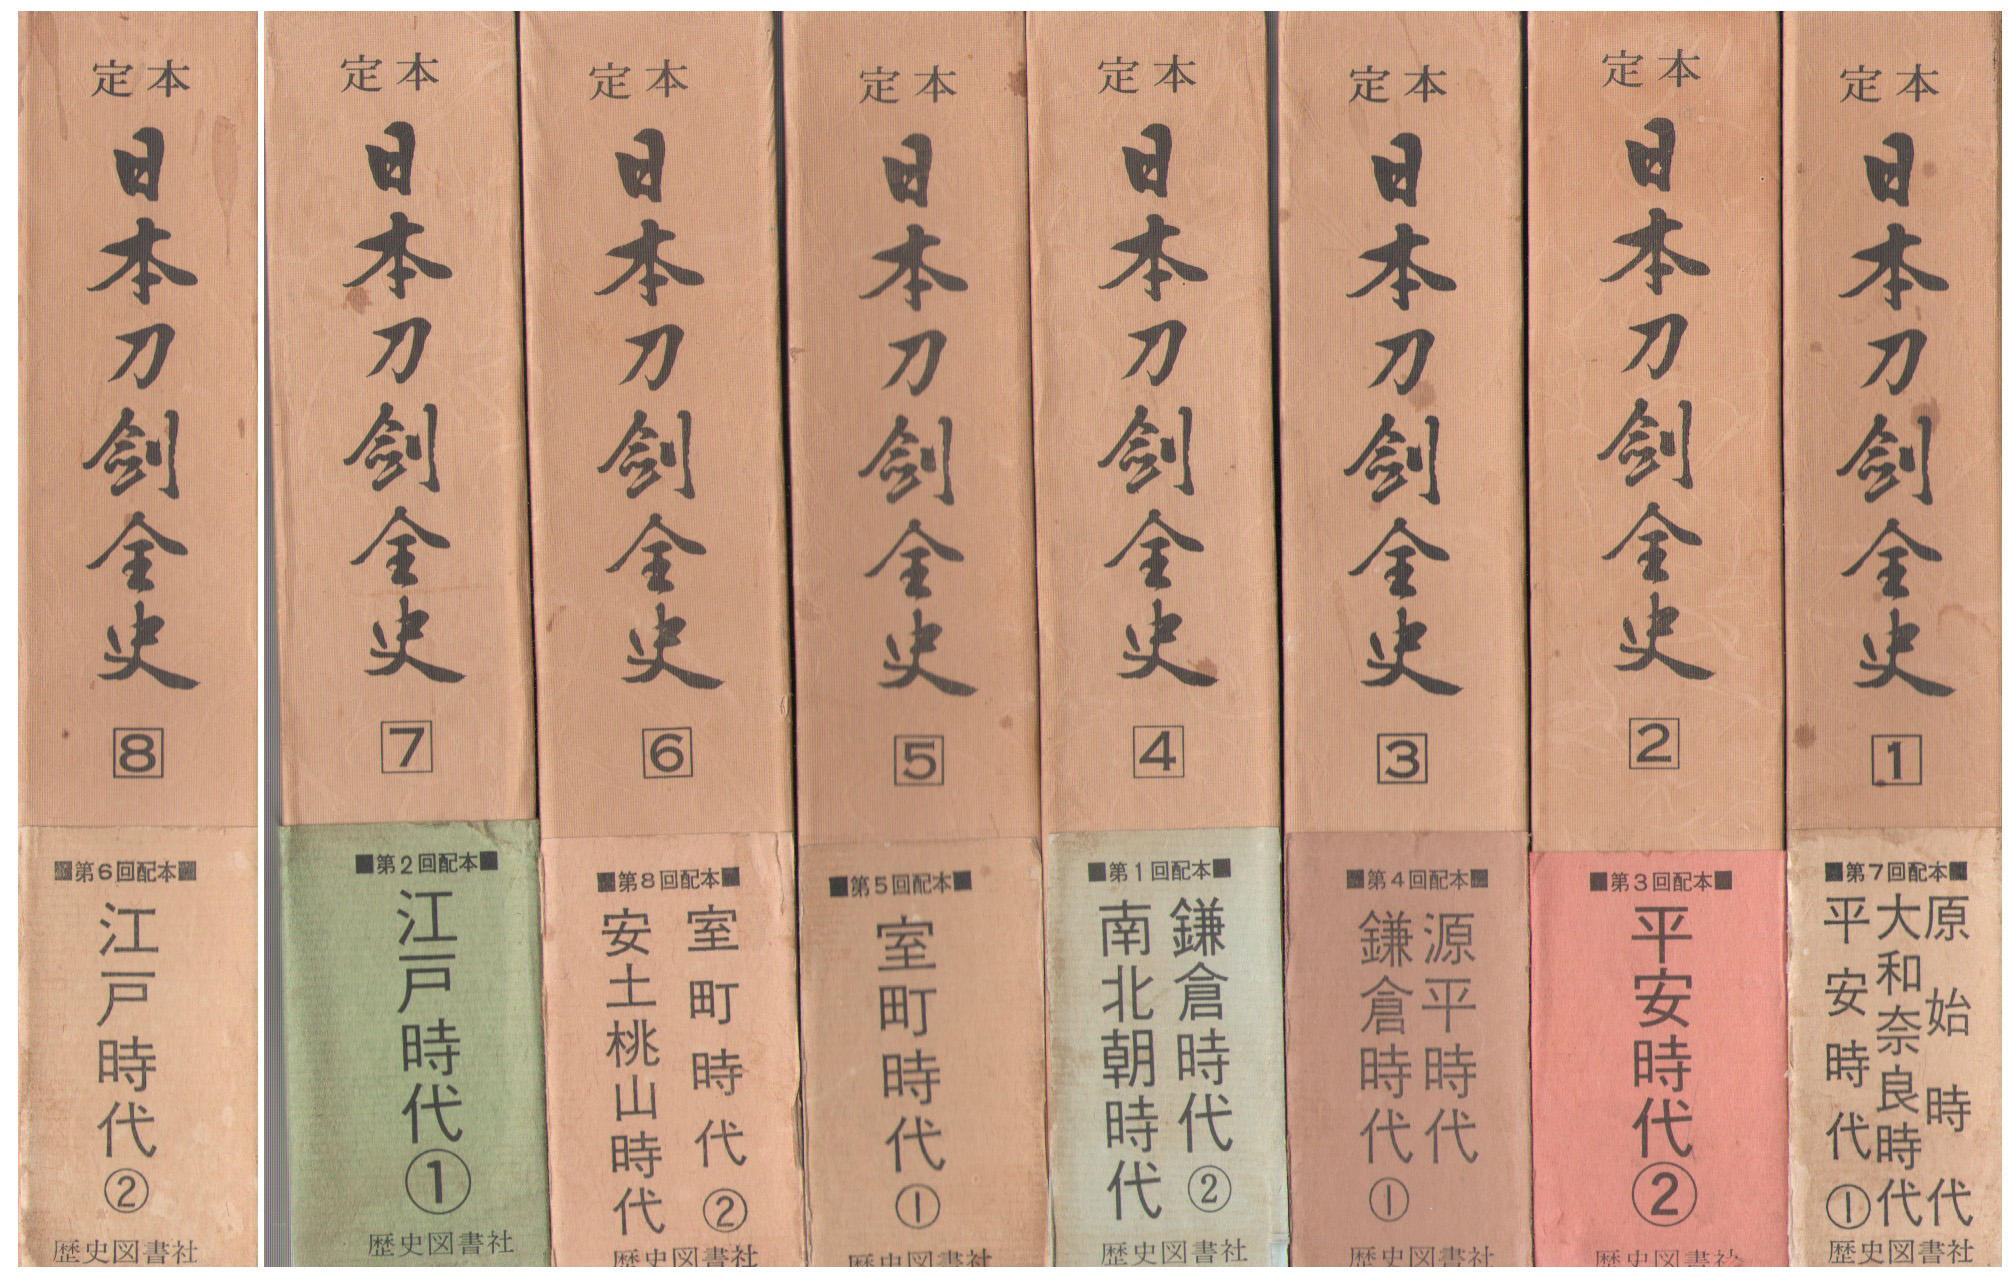 定本
日本刀剣全史
8
■第6回配本■
江戸時代②
歴史図書社
定本
日本刀剣全史
7
■第2回配本■
江戸時代①
歴史図書社
定本
日本刀剣全史
6
■第8回配本■
室町時代②
安土桃山時代
歴史図書社
定本
日本刀剣全史
5
■第5回配本■
室町時代①
歴史図書社
定本
日本刀剣全史
4
■第1回配本■
鎌倉時代②
南北朝時代
歴史図書社
定本
日本刀剣全史
3
■第4回配本■
源平時代
鎌倉時代①
歴史図書社
定本
日本刀剣全史
2
■第3回配本■
平安時代②
歴史図書社
定本
日本刀剣全史
1
■第7回配本■
原始時代
大和奈良時代
平安時代①
歴史図書社